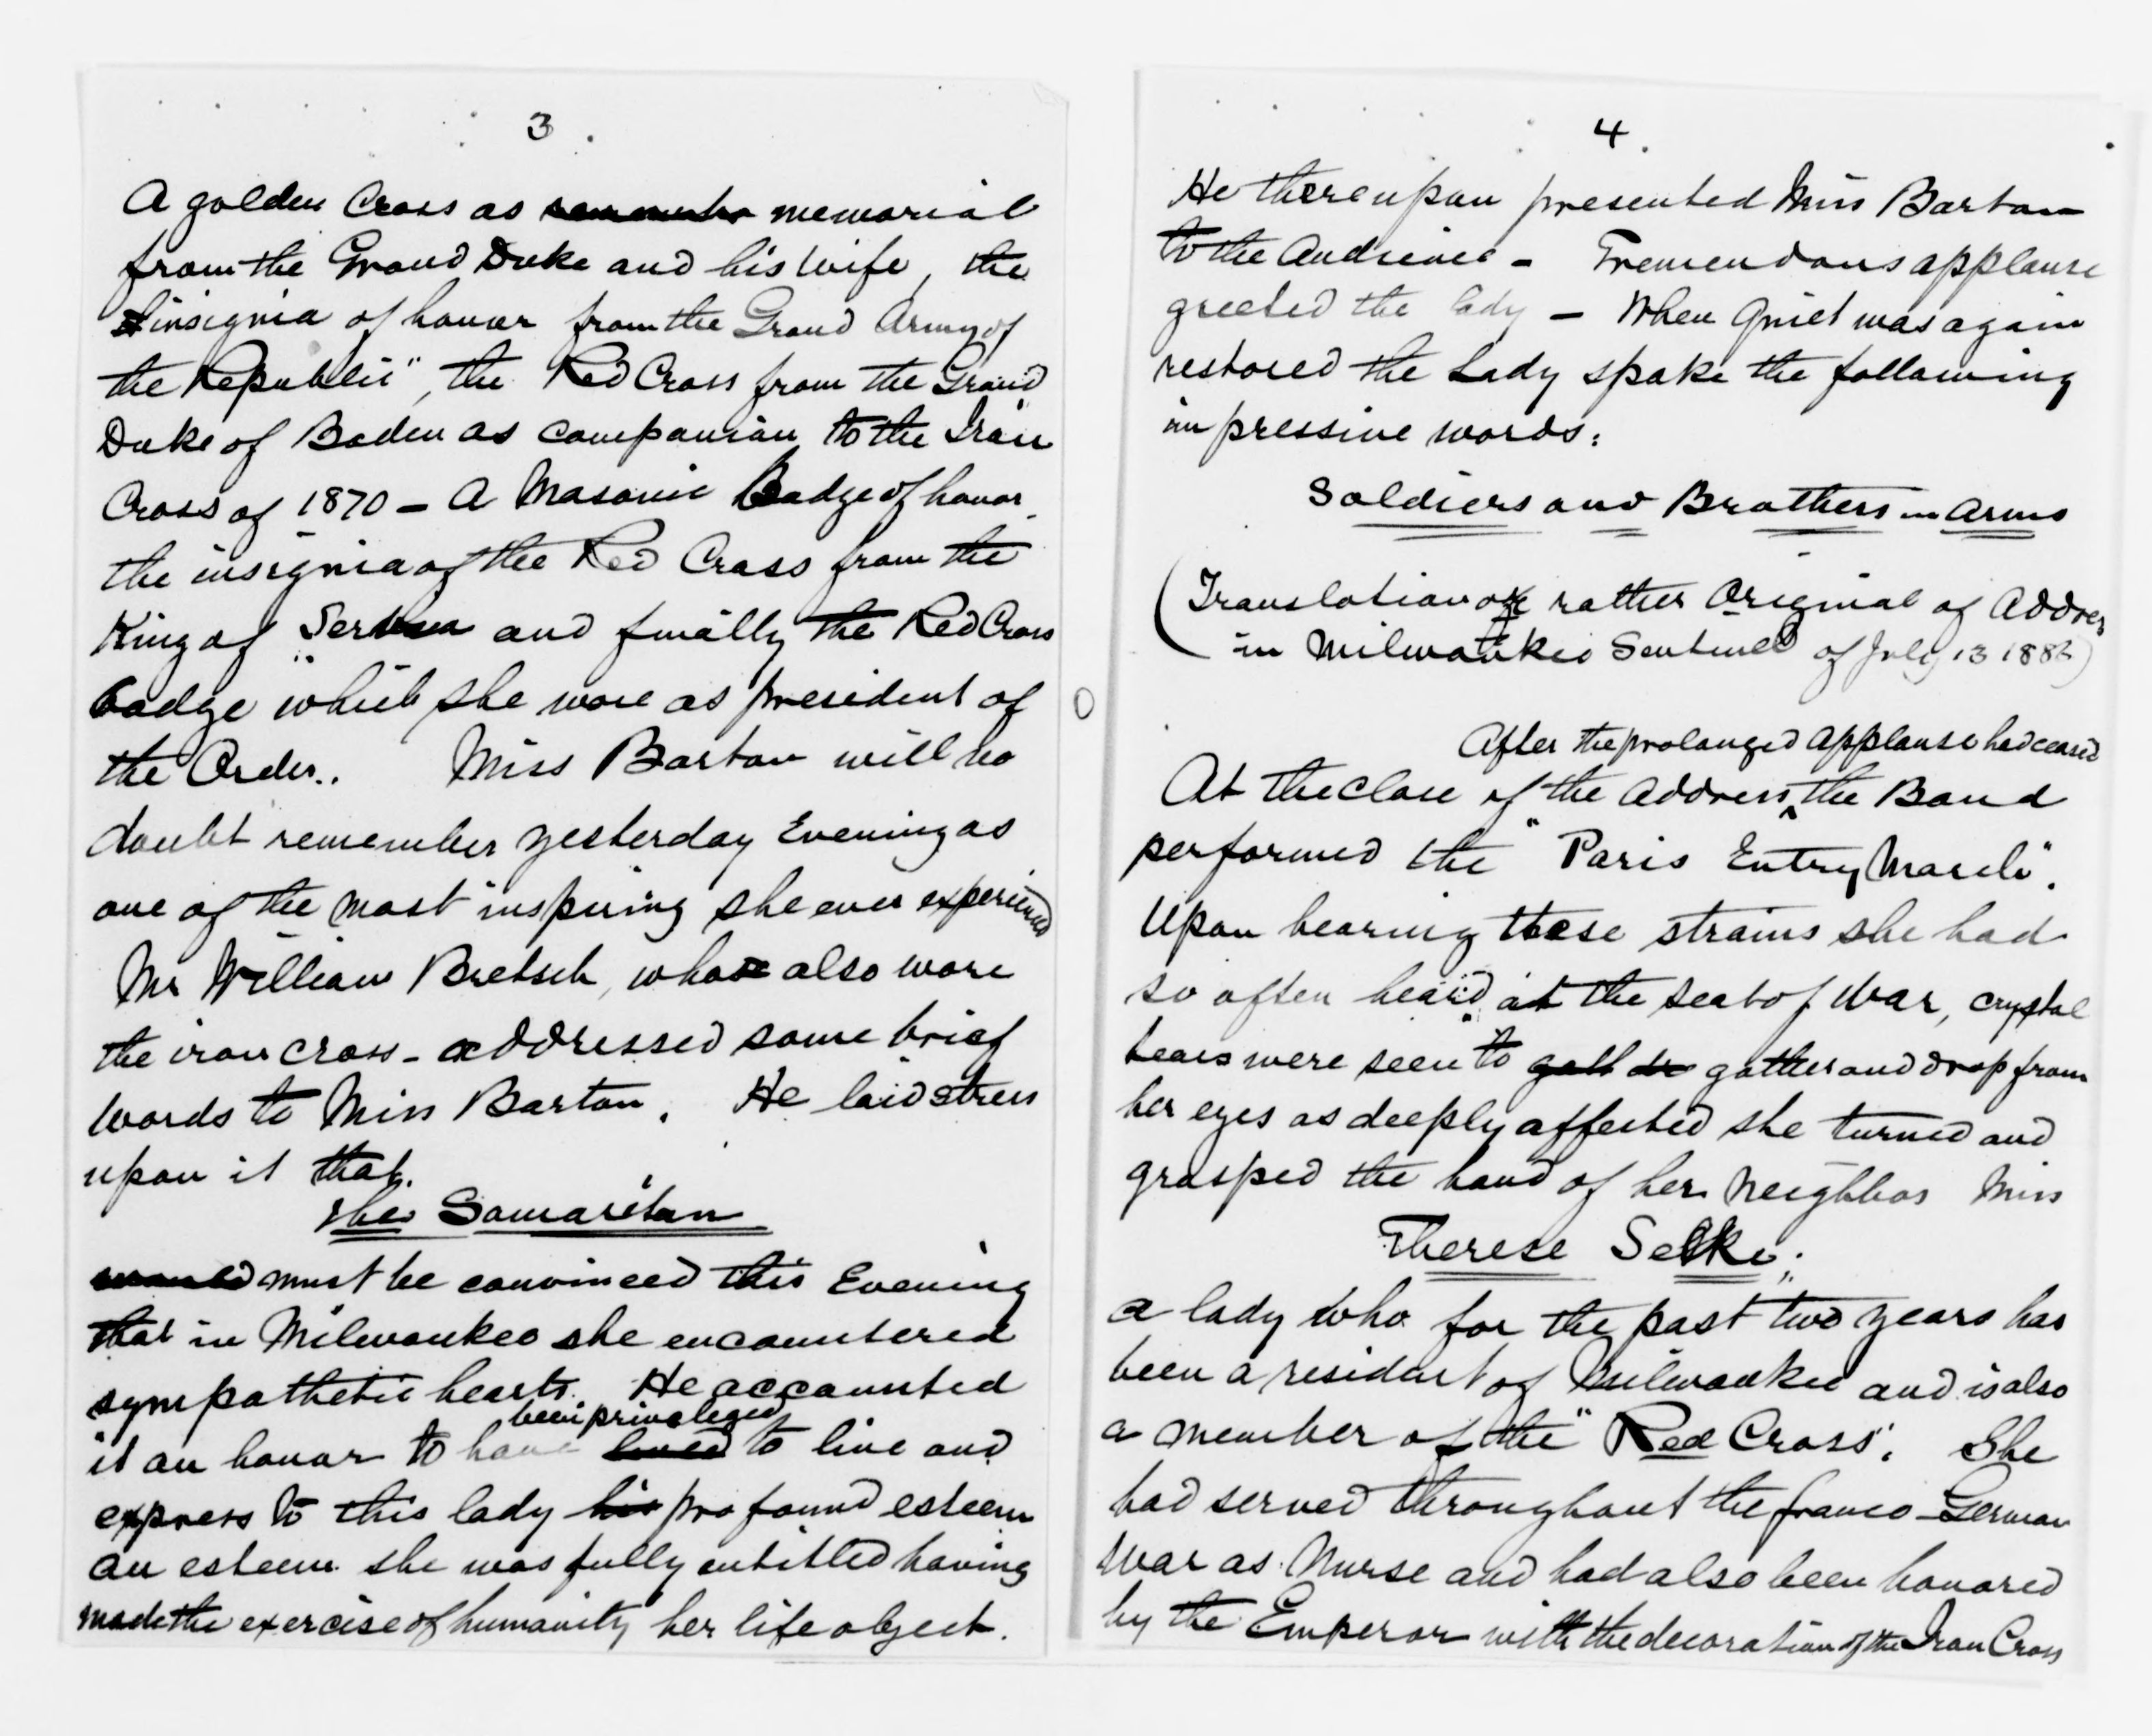 3.
A golden Cross as memorial
from the Grand Duke and his wife, the
insignia of honor from the Grand Army of
the Republic", the Red Cross from the Grand
Duke of Baden as companion to the Iron
Cross of 1870 - A Masonic Badge of honor.
the insignia of the Red Cross from the
King of Servia and finally the Red Cross
badge which she wore as president of
the Order.. Miss Barton will no
doubt remember yesterday Evening as
one of the most inspiring she ever experienced
Mr William Bretsch, who also wore
the iron cross - addressed some brief
words to Miss Barton. He laid stress
upon it that.
The Samaritan
must be convinced this Evening
that in Milwaukee she encountered
sympathetic hearts. He accounted
been privileged
it an honor to have lived to live and
express to this lady his profound esteem
an esteem she was fully entitled having
made the exercise of humanity her life object.
4.
He thereupon presented Miss Barton
to the Audience - Tremendous applause
greeted the lady - When Quiet was again
restored the Lady spoke the following
impressive words:
Soldiers and Brothers in Arms
(Translation or rather Original of Address
in Milwaukee Sentinel of July 13 188)
After the prolonged applause had ceased
At the Close of the Address, the Band
performed the "Paris Entry March".
Upon hearing these strains she had
so often heard at the seat of War, crystal
tears were seen to gather and drop from
her eyes as deeply affected she turned and
grasped the hand of her Neighbor Miss
Therese Selke.
a lady who for the past two years has
been a resident of Milwaukee and is also
a member of the "Red Cross". She
had served throughout the franco-German
War as Nurse and had also been honored
by the Emperor with the decoration of the Iron Cross